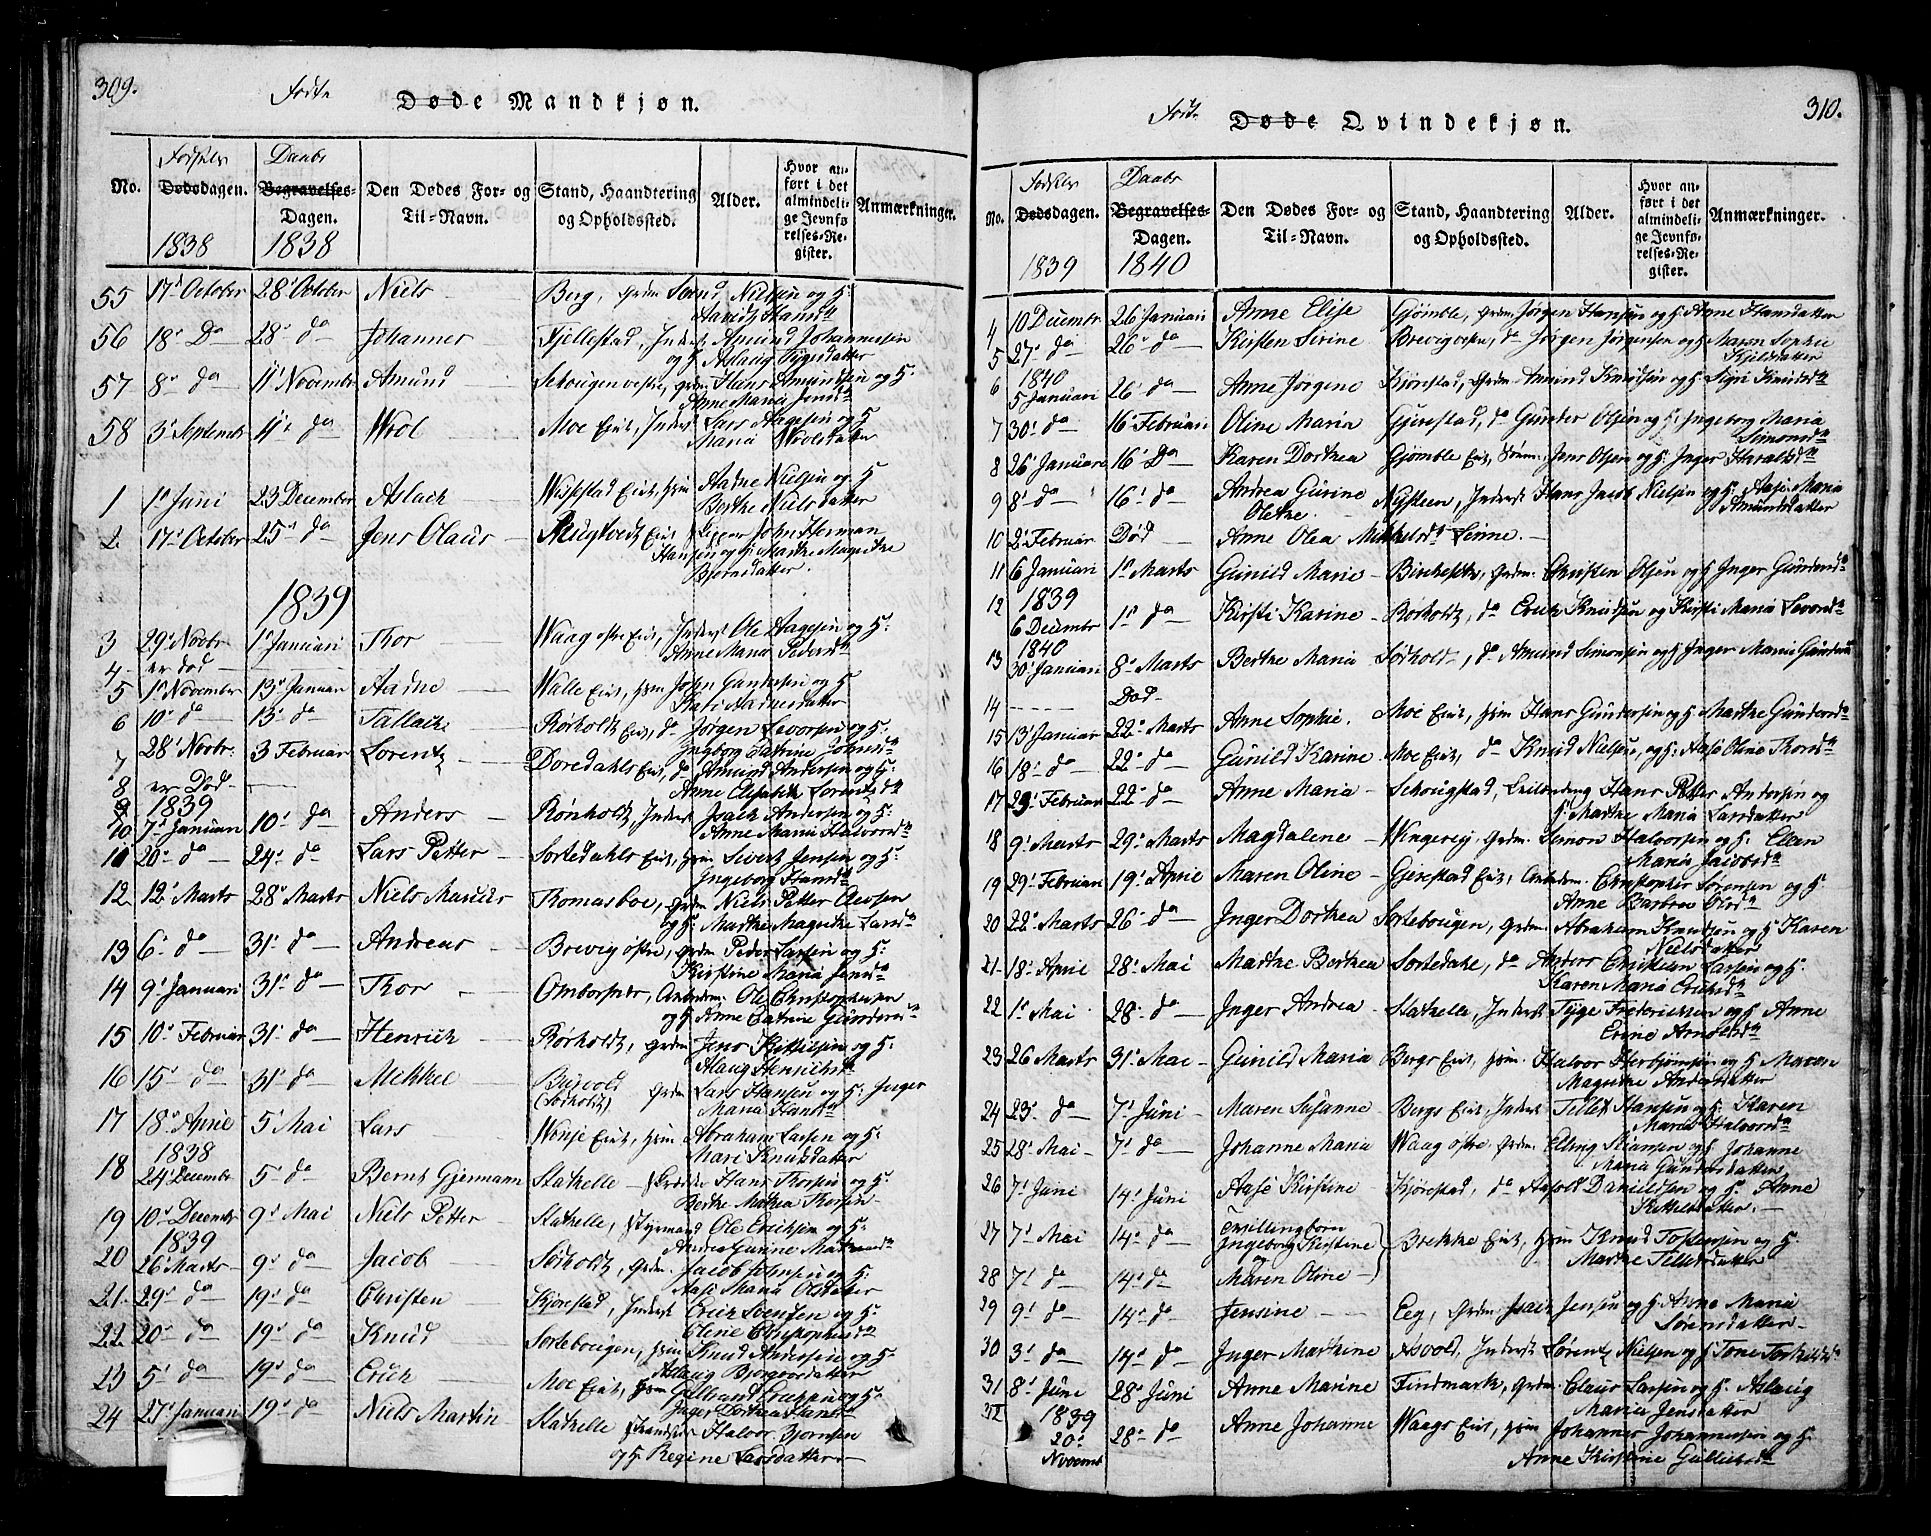 309.
Føde
Døde Mandkjøn.
No. Fødsels Dødsdagen. Daabs Begravelses-Dagen. Den Dødes For- og Til-Navn. Stand, Haandtering og Opholdssted. Alder. Hvor anført i det almindelige Jevnførelses-Register. Anmærkninger.
1838 1838
55 17 October 28 October Niels Berg, Grdm Nielsen og H:
56 18 Do 28 do Johannes Fjellestad, Inderst Amund Johannesen
og H Aslaug
57 8 do 11 Novembr Amund Hans Amundsen og H:
Anne Maria
58 3 September 11 do Wrol Moe Eiet, Inderst Lars Aagesen og H
Maria Wrolsdatter
1 1 Juni 23 December Aslach Eiet, Hsm Aadne Nielsen og H
Berthe Nielsdatter
2 17 October 25 do Jens Olaus Eiet John Herman
Hansen og H: Marthe Magrethe
Bjornsdatter.
1839
3 29 Novbr 1 Januari Thor Waag østre Eiet, Inderst Ole Aagesen og H:
Anne Maria Pedersd
4 er død
5 1 November 13 Januar Aadne Walle Eiet, Hsm og H
Aadnesdatter
6 10 do 13 do Tallach Rørholt Eiet, do Jørgen Levorsen og H:
Ingborg Catrine Johnsd
7 28 Novbr. 3 Februar Lorentz Dordahls Eiet, do Amund Andersen og H:
Anne Elisabeth Lorentzd
8 er Død
9 1839
10 7 Januari 10 do Anders Rønholt, Inderst Isach Andersen og H:
Anne Maria Halvorsd
11 20 do 24 do Lars Petter Sortedahls Eiet, Hsm Sivert Jensen og H:
Ingeborg Hansd
12 12 Marts 28 Marts Niels Marius Thomasboe, Grdm Niels Petter
og H: Marthe Magrethe Larsd
13 6 do 31 do Andreas Brevig østre, Grdm Peder Larsen og H:
Kirstine Maria
14 9 Januari 31 do Thor Ombordsnes, Ole Christophersen
og H: Anne Catrine Gundersd
15 10 Februar 31 do Henrich Rørholt, Grdm Jens Kittilsen og H:
Aslaug Henrichsd
16 15 do 31 do Mikkel (Sørholt) Grdm Lars Hansen og H: Inger
Maria Hansd
17 18 April 5 Mai Lars Eiet, Hsm Abraham Larsen og H:
Mari Knudsdatter
1838
18 24 Decembr 5 do Bernt Gjermann Stathelle Hans Thorsen og H:
Berthe Mathea Thorsen
19 10 Decembr 9 Mai Niels Petter Stathelle, Styrmand Ole Erichsen og H:
1839
20 26 Marts 9 do Jacob Sørholt, Grdm. Jacob Johnsen og H:
Aase Maria Olsdatter
21 29 do 19 do Christen Kjørestad, Inderst Erich Svensen og H:
Olene Christophersd
22 20 do 19 do Knud Sortebougen, Hsm Knud Andersen og H
Aslaug
23 5 do 19 do Erich Moe Eiet, Hsm
Inger Dorthea
24 27 Januari 19 do Niels Martin Stathelle Halvor Bjørnsen
og H Regine Larsdatter
310.
Føde
Døde Qvindekjøn.
No. Fødsels Dødsdagen. Daabs Begravelses-Dagen. Den Dødes For- og Til-Navn. Stand, Haandtering og Opholdssted. Alder. Hvor anført i det almindelige Jevnførelses-Register. Anmærkninger.
1839 1840
4 10 Decembr 26 Januari Anne Elise Gjømble, Grdm Jørgen Hansen og H: Anne Hansdatter
5 27 do 26 do Kirsten Serine Brevig vestre, do Jørgen Jørgensen og H Maren Sophie
1840
6 5 Januari 26 do Anne Jørgene Kjørestad, Grdm Amund Knudsen og H: Siri Knudsd
7 30 do 16 Februari Oline Maria Gjerestad, do Gunder Olsen og H: Ingeborg Maria
Simonsd
8 26 Januari 16 Do Karen Dorthea Gjømble Eiet, Jens Olsen og H: Inger Haralsd
9 8 do 16 do Andrea Gurine
Olethe Nysteen, Inderst Hans Jacob Nielsen og H: Aase Maria
Amundsdatter
10 2 Februar Død Anne Olea Mikkelsd Linne.
11 6 Januari 1 Marts Gunild Marie Grdm. Christen Olsen og H Inger Gundersd
1839
12 6 Decembr 1 do Kirsti Karine Rørholt, do Erich Knudsen og Kirsti Maria Levorsd
1840
13 30 Januari 8 Marts Berthe Maria Sørholt, do Amund Simonsen og H Inger Maria
14 Død
15 13 Januar 22 Marts Anne Sophie. Moe Eiet, Hsm Hans Gundersen og H Marthe Gundersd
16 18 do 22 do Gunild Karine Moe Eiet, do Knud Nielsen, og H: Aase Oline Thorsd
17 23 Februar 22 do Anne Maria Schougstad, Leilænding Hans Petter Andersen og
H: Marthe Maria Larsdatter
18 9 Marts 29 Marts Magdalene Wingereiy, Grdm. Simon Halvorsen og H: Ellen
Maria Jacobsd
19 29 Februari 19 April Maren Oline Gjerestad Eiet, Christopher Sørensen og H:
Anne Barbroe Olsd
20 22 Marts 26 do Inger Dorthea Sortebougen, Grdm. Abraham Knudsen og H Karen
Nielsdatter
21 18 April 28 Mai Marthe Berthea Sortedale, do Anders Christian Larsen og H:
Karen Maria Erichsd
22 1 Mai 28 do Inger Andrea Stathelle, Inderst Tyge Frederichsen og H Anne
Erine Arnoldsd
23 26 Marts 31 Mai Gunild Maria Bergs Eiet, Hsm. Halvor Herbjørnsen og H Maren
Magrethe Andersdatter
24 23 do 7 Juni Maren Susanne Bergs Eiet, Inderst Tellef Hansen og H: Karen
Maria Halvorsd
25 28 Mai 7 do Johanne Maria Waag østre, Grdm. Elling Stiansen og H Johanne
Maria Gundersdatter
26 7 Juni 14 Juni Aase Kirstine Kjørestad, do Aasold Danielsen og H: Anne
Kittelsdatter.
27 7 Mai 14 do Tvillingborn
Ingeborg Kirstine
og Brekke Eiet, Hsm Knud Tostensen og H:
Marthe Tellefsdatter
28 7 do 14 do Maren Oline
29 9 do 14 do Jensine Eeg, Grdm. Isach Jensen og H Anne Maria
Sørensdatter
30 3 do 14 do Inger Marthine Aasvold, Inderst Sørent Nielsen og H Tone
31 8 Juni 28 Juni Anne Marine Findmark, Grdm. Claus Larsen og H. Aslaug
Maria Jensdatter
32 1839
20
Novemb 28 do Anne Johanne Waags Eiet, Hsm Johannes Johannesen og H.
Anne Kirstine Gullichsd